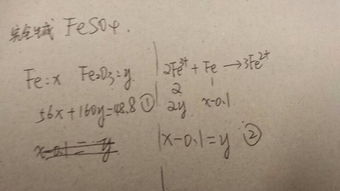 完全生成 FeSO4.
Fe:x Fe2O3=y
56x+160y=48.8 ①
x-0.1=y
2Fe3+ + Fe → 3Fe2+
2 1
2y x-0.1
x-0.1=y ②